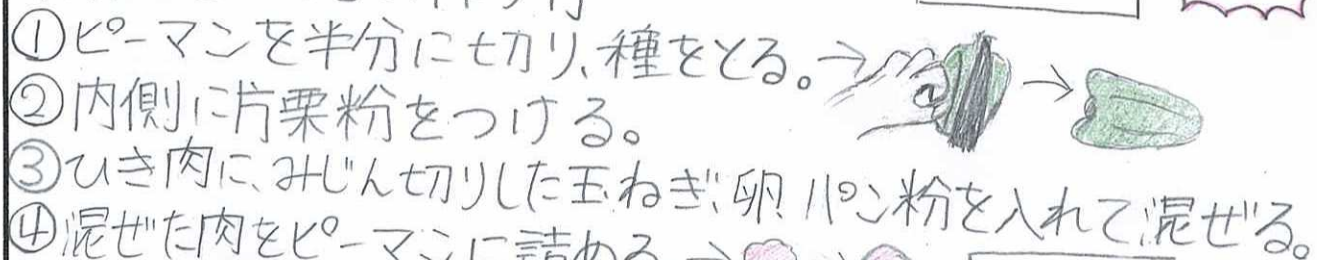 ①ピーマンを半分に切り、種をとる。→ →
②内側に片栗粉をつける。
③ひき肉に、みじん切りした玉ねぎ、卵、パン粉を入れて混ぜる。
④混ぜた肉をピーマンに詰める →